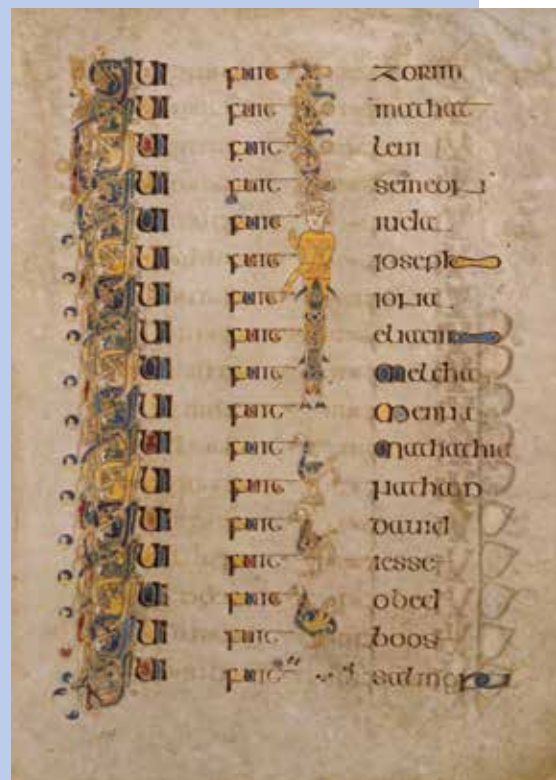 Qui fuit zorim
Qui fuit mathat
Qui fuit leui
Qui fuit semeon
Qui fuit iuda
Qui fuit ioseph
Qui fuit iona
Qui fuit eliacim
Qui fuit melcha
Qui fuit menna
Qui fuit mathathia
Qui fuit nathan
Qui fuit dauid
Qui fuit iesse
Qui fuit obed
Qui fuit boos
Qui fuit salmon